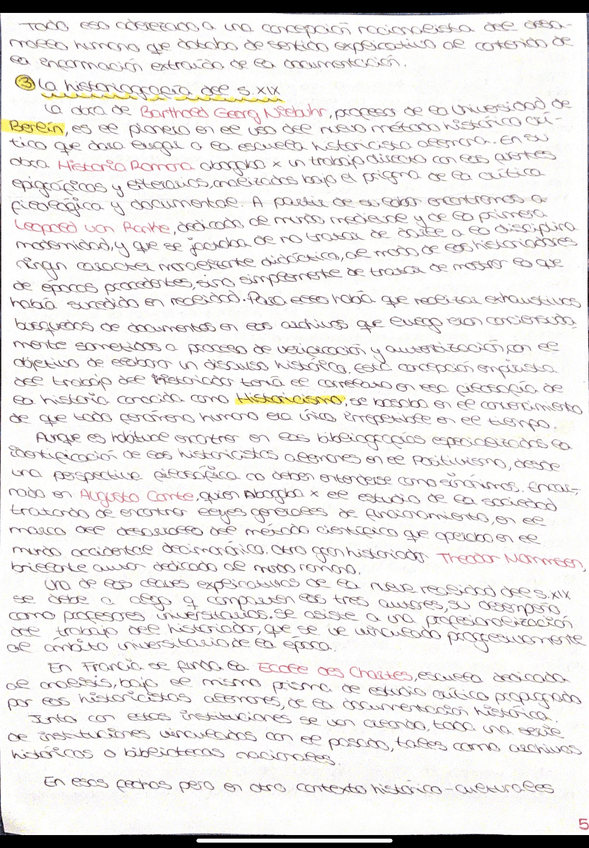 Todo eso aderezado a una concepción racionalista del desa-
rrollo humano que dotaba de sentido explicativo al contenido de
la información extraída de la documentación.
③ La historiografía del s.XIX
La obra de Barthold Georg Niebuhr, profesor de la Universidad de
Berlín, es el pionero en el uso del nuevo método histórico crí-
tico que dará lugar a la escuela historicista alemana. En su
obra Historia Romana abogaba x un trabajo directo con las fuentes
epigráficas y literarias, analizadas bajo el prisma de la crítica
filológica y documental. A partir de su labor encontramos a
Leopold von Ranke, dedicado al mundo medieval y de la primera
modernidad, y que se jactaba de no tratar de darle a la disciplina
ningún carácter moralizante didáctico, al modo de los historiadores
de épocas precedentes, sino simplemente de tratar de mostrar lo que
había sucedido en realidad. Para ello había que realizar exhaustivas
búsquedas de documentos en los archivos que luego eran concienzuda-
mente sometidos a proceso de verificación y autentización, con el
objetivo de elaborar un discurso histórico, esta concepción empirista
del trabajo del historiador tenía el correlato en esa filosofía de
la historia conocida como Historicismo, se basaba en el convencimiento
de que todo fenómeno humano era único e irrepetible en el tiempo.
Aunque es habitual encontrar en las bibliografías especializadas la
identificación de los historicistas alemanes en el Positivismo, desde
una perspectiva filosófica no deben entenderse como sinónimos. Encar-
nado en Augusto Comte, quien Abogaba x el estudio de la sociedad
tratando de encontrar leyes generales de funcionamiento, en el
marco del desarrollo del método científico que operaba en el
mundo occidental decimonónico. Otro gran historiador Theodor Mommsen,
brillante autor dedicado al mundo romano.
Una de las claves explicativas de la nueva realidad del s.XIX
se debe a algo q comparten los tres autores, su desempeño
como profesores universitarios. Se asiste a una profesionalización
del trabajo del historiador, que se ve vinculado progresivamente
al ámbito universitario de la época.
En Francia se funda la Ecole des Chartes, escuela dedicada
al análisis, bajo el mismo prisma de estudio crítico propugnado
por los historicistas alemanes, de la documentación histórica.
Junto con estas instituciones se van creando, toda una serie
de instituciones vinculadas con el pasado, tales como archivos
históricos o bibliotecas nacionales.
En esas fechas pero en otro contexto histórico-culturales
5